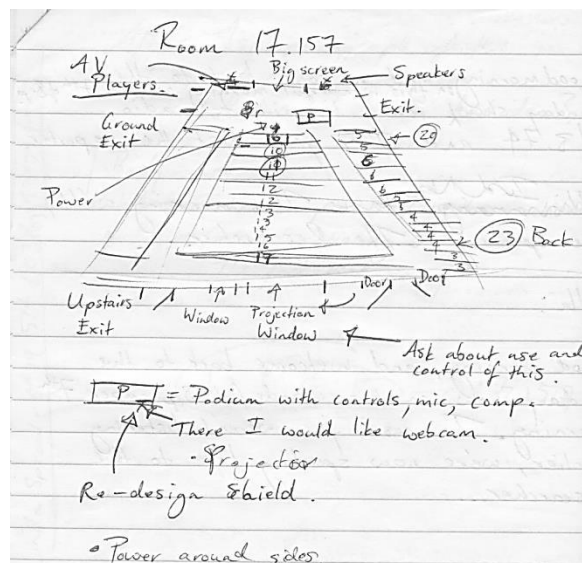 Room 17.157
AV
Players.
Big screen
Speakers
Exit.
Ground
Exit
P
Power
10
10
11
12
12
13
13
14
15
16
17
5
5
6
6
6
7
4
4
4
4
3
3
29
23 Back
Upstairs
Exit
Window
Projection
Window
Door
Door
Ask about use and
control of this.
P = Podium with controls, mic, comp.
There I would like webcam.
• Projector
Re-design Shield.
• Power around sides